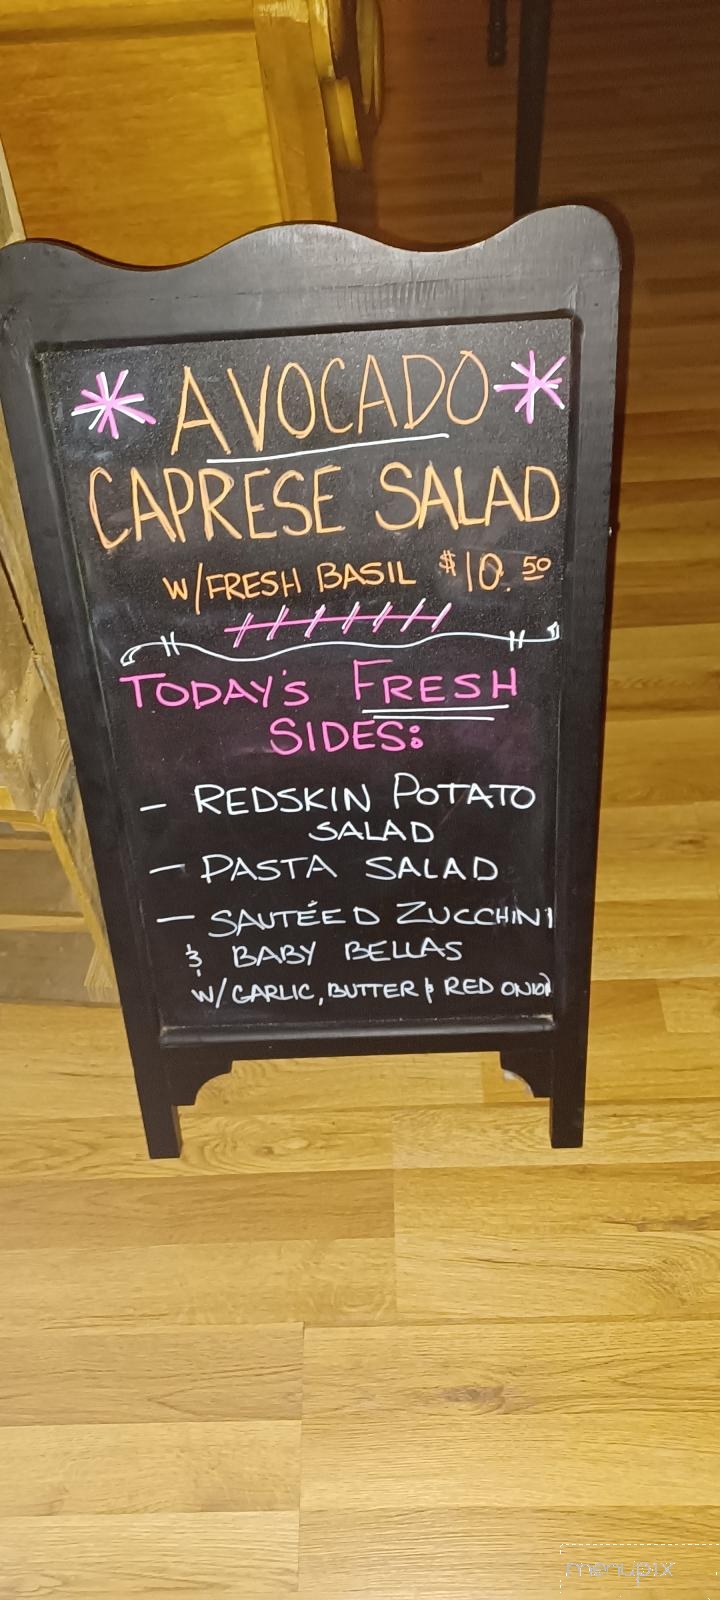 * AVOCADO *
CAPRESE SALAD
W/FRESH BASIL $10.50
TODAY'S FRESH
SIDES:
- REDSKIN POTATO
SALAD
- PASTA SALAD
- SAUTÉED ZUCCHINI
& BABY BELLAS
W/GARLIC, BUTTER & RED ONION
menupix